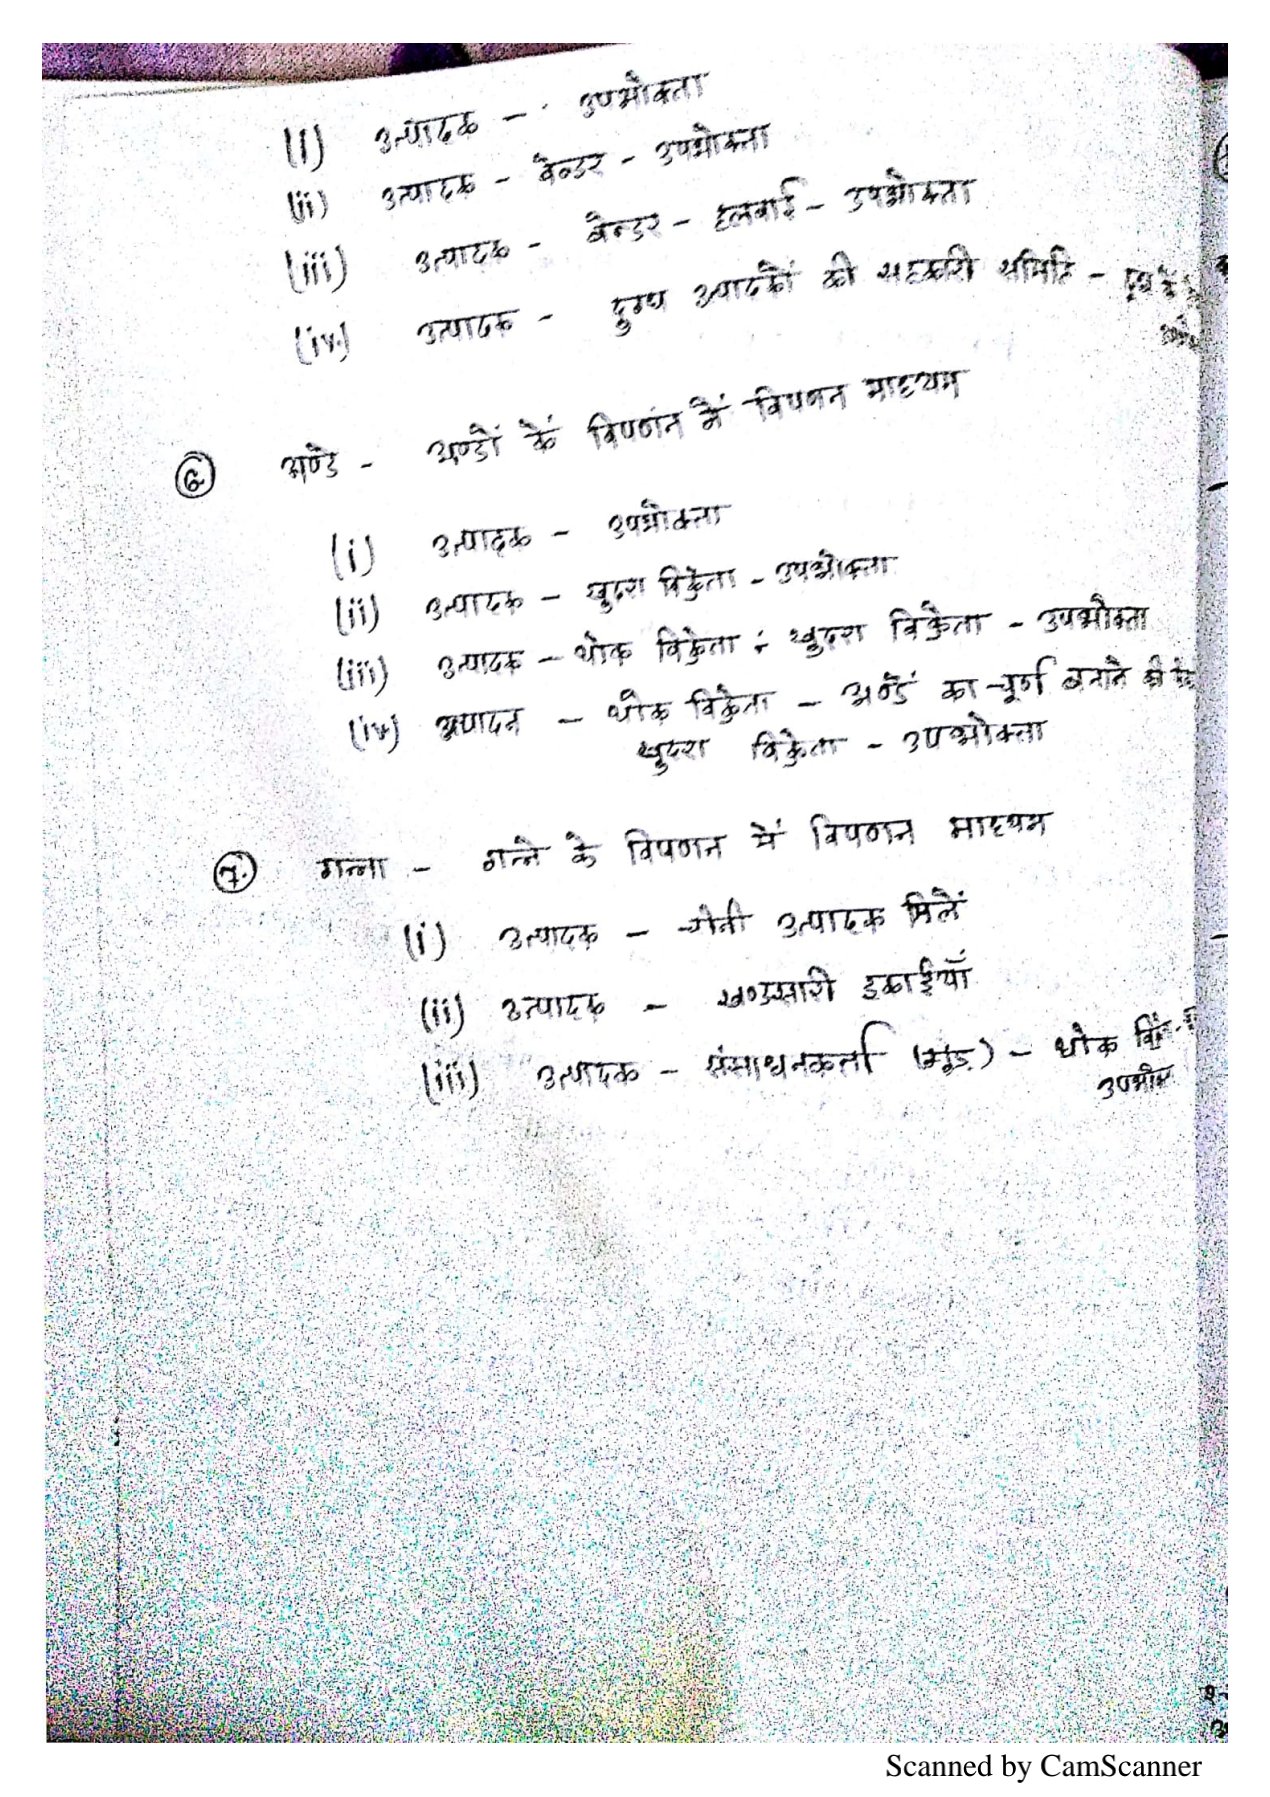 (i) उत्पादक - उपभोक्ता
(ii) उत्पादक - वेन्डर - उपभोक्ता
(iii) उत्पादक - वेन्डर - हलवाई - उपभोक्ता
(iv) उत्पादक - दुग्ध उत्पादकों की सहकारी समिति -
⑥ अण्डे - अण्डों के विपणन में विपणन माध्यम
(i) उत्पादक - उपभोक्ता
(ii) उत्पादक - खुदरा विक्रेता - उपभोक्ता
(iii) उत्पादक - थोक विक्रेता - खुदरा विक्रेता - उपभोक्ता
(iv) उत्पादन - थोक विक्रेता - अण्डें का चूर्ण बनाने की
खुदरा विक्रेता - उपभोक्ता
⑦. गन्ना - गन्ने के विपणन में विपणन माध्यम
(i) उत्पादक - चीनी उत्पादक मिलें
(ii) उत्पादक - खण्डसारी इकाईयाँ
(iii) उत्पादक - संसाधनकर्ता (गुड़) - थोक
Scanned by CamScanner